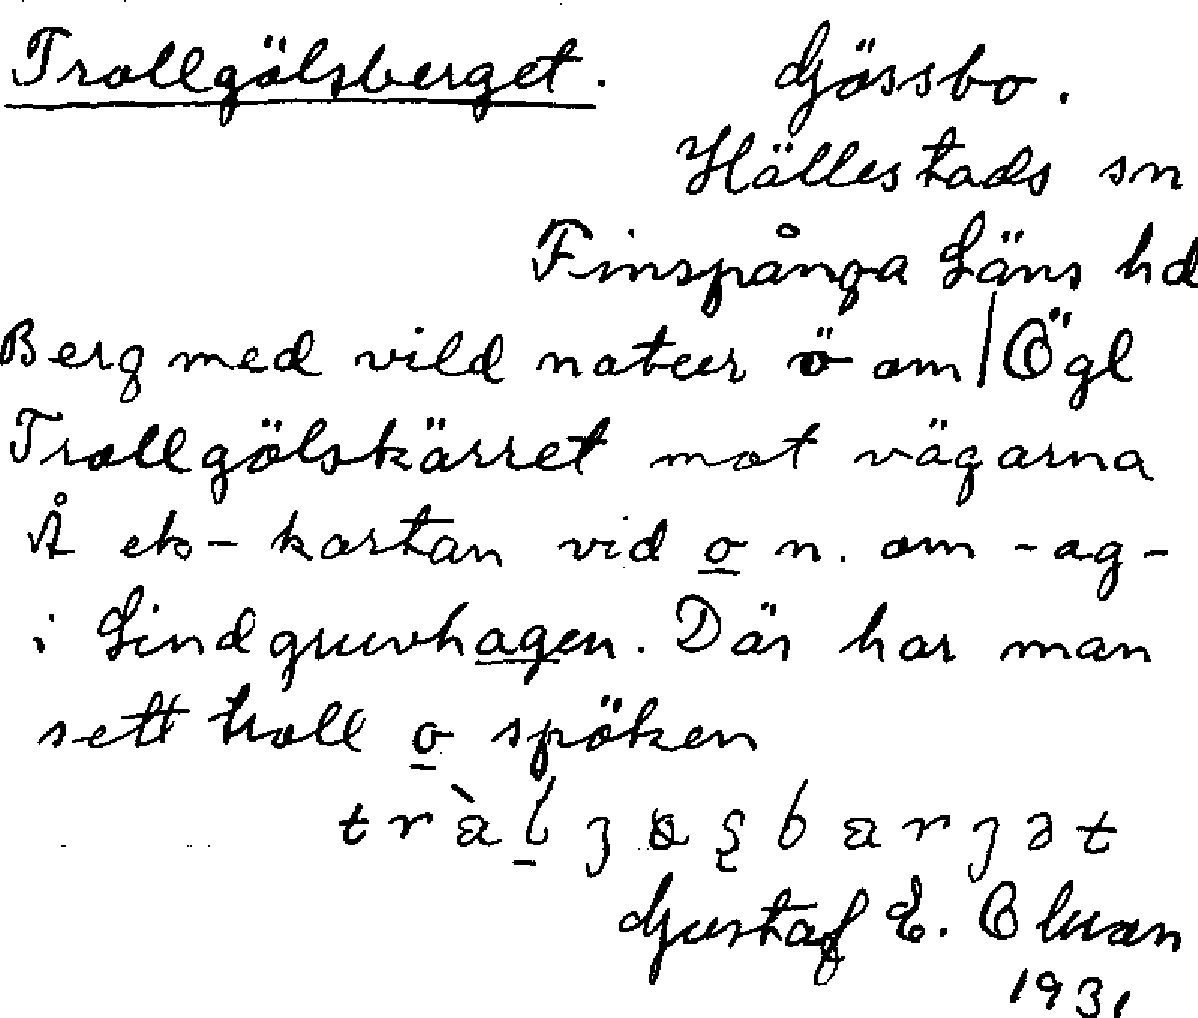 Trollgölsberget. Gössbo.
Hällestads sn
Finspånga Läns hd
Berg med vild natur ö om | Ögl
Trollgölskärret mot vägarna
Å ek-kartan vid o n. om -ag-
i Lindgruvhagen. Där har man
sett troll o spöken
Gustaf E.
1931